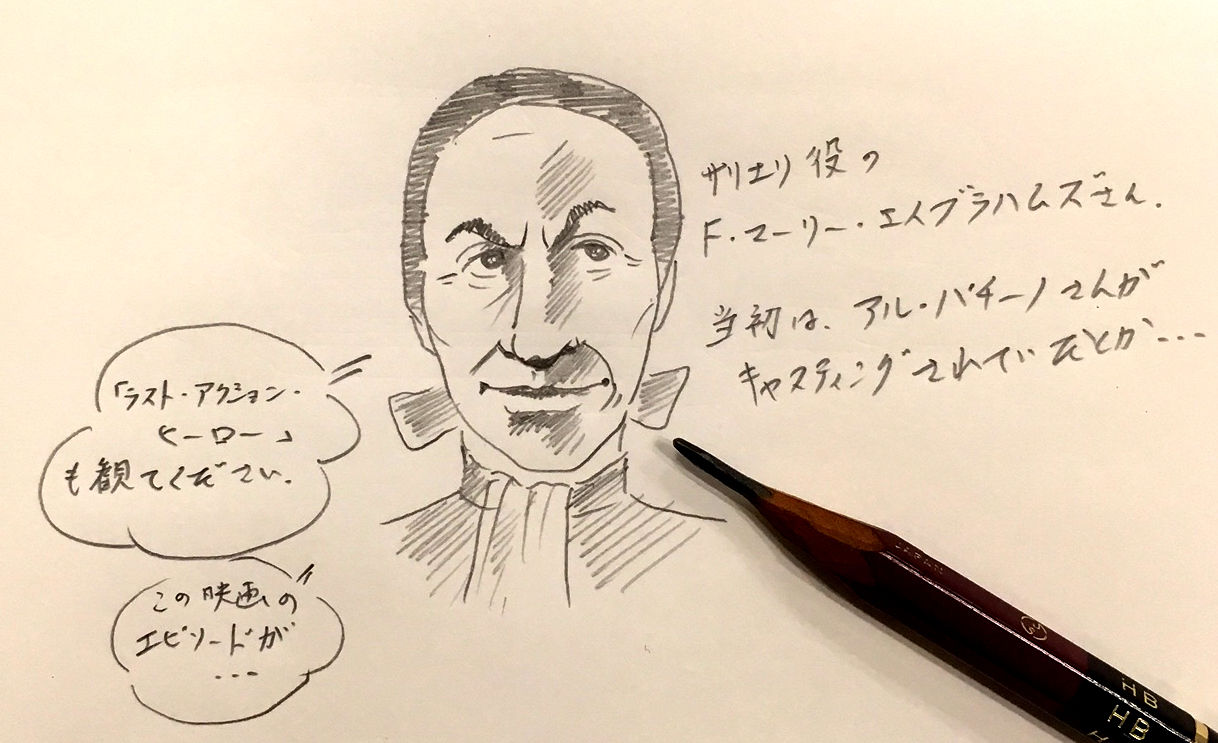 サリエリ役の
F・マーリー・エイブラハムズさん.
当初は、アル・パチーノさんが
キャスティングされていたとか…
「ラスト・アクション・
ヒーロー」
も観てください.
この映画の
エピソードが
…
JAPAN
HB
HB